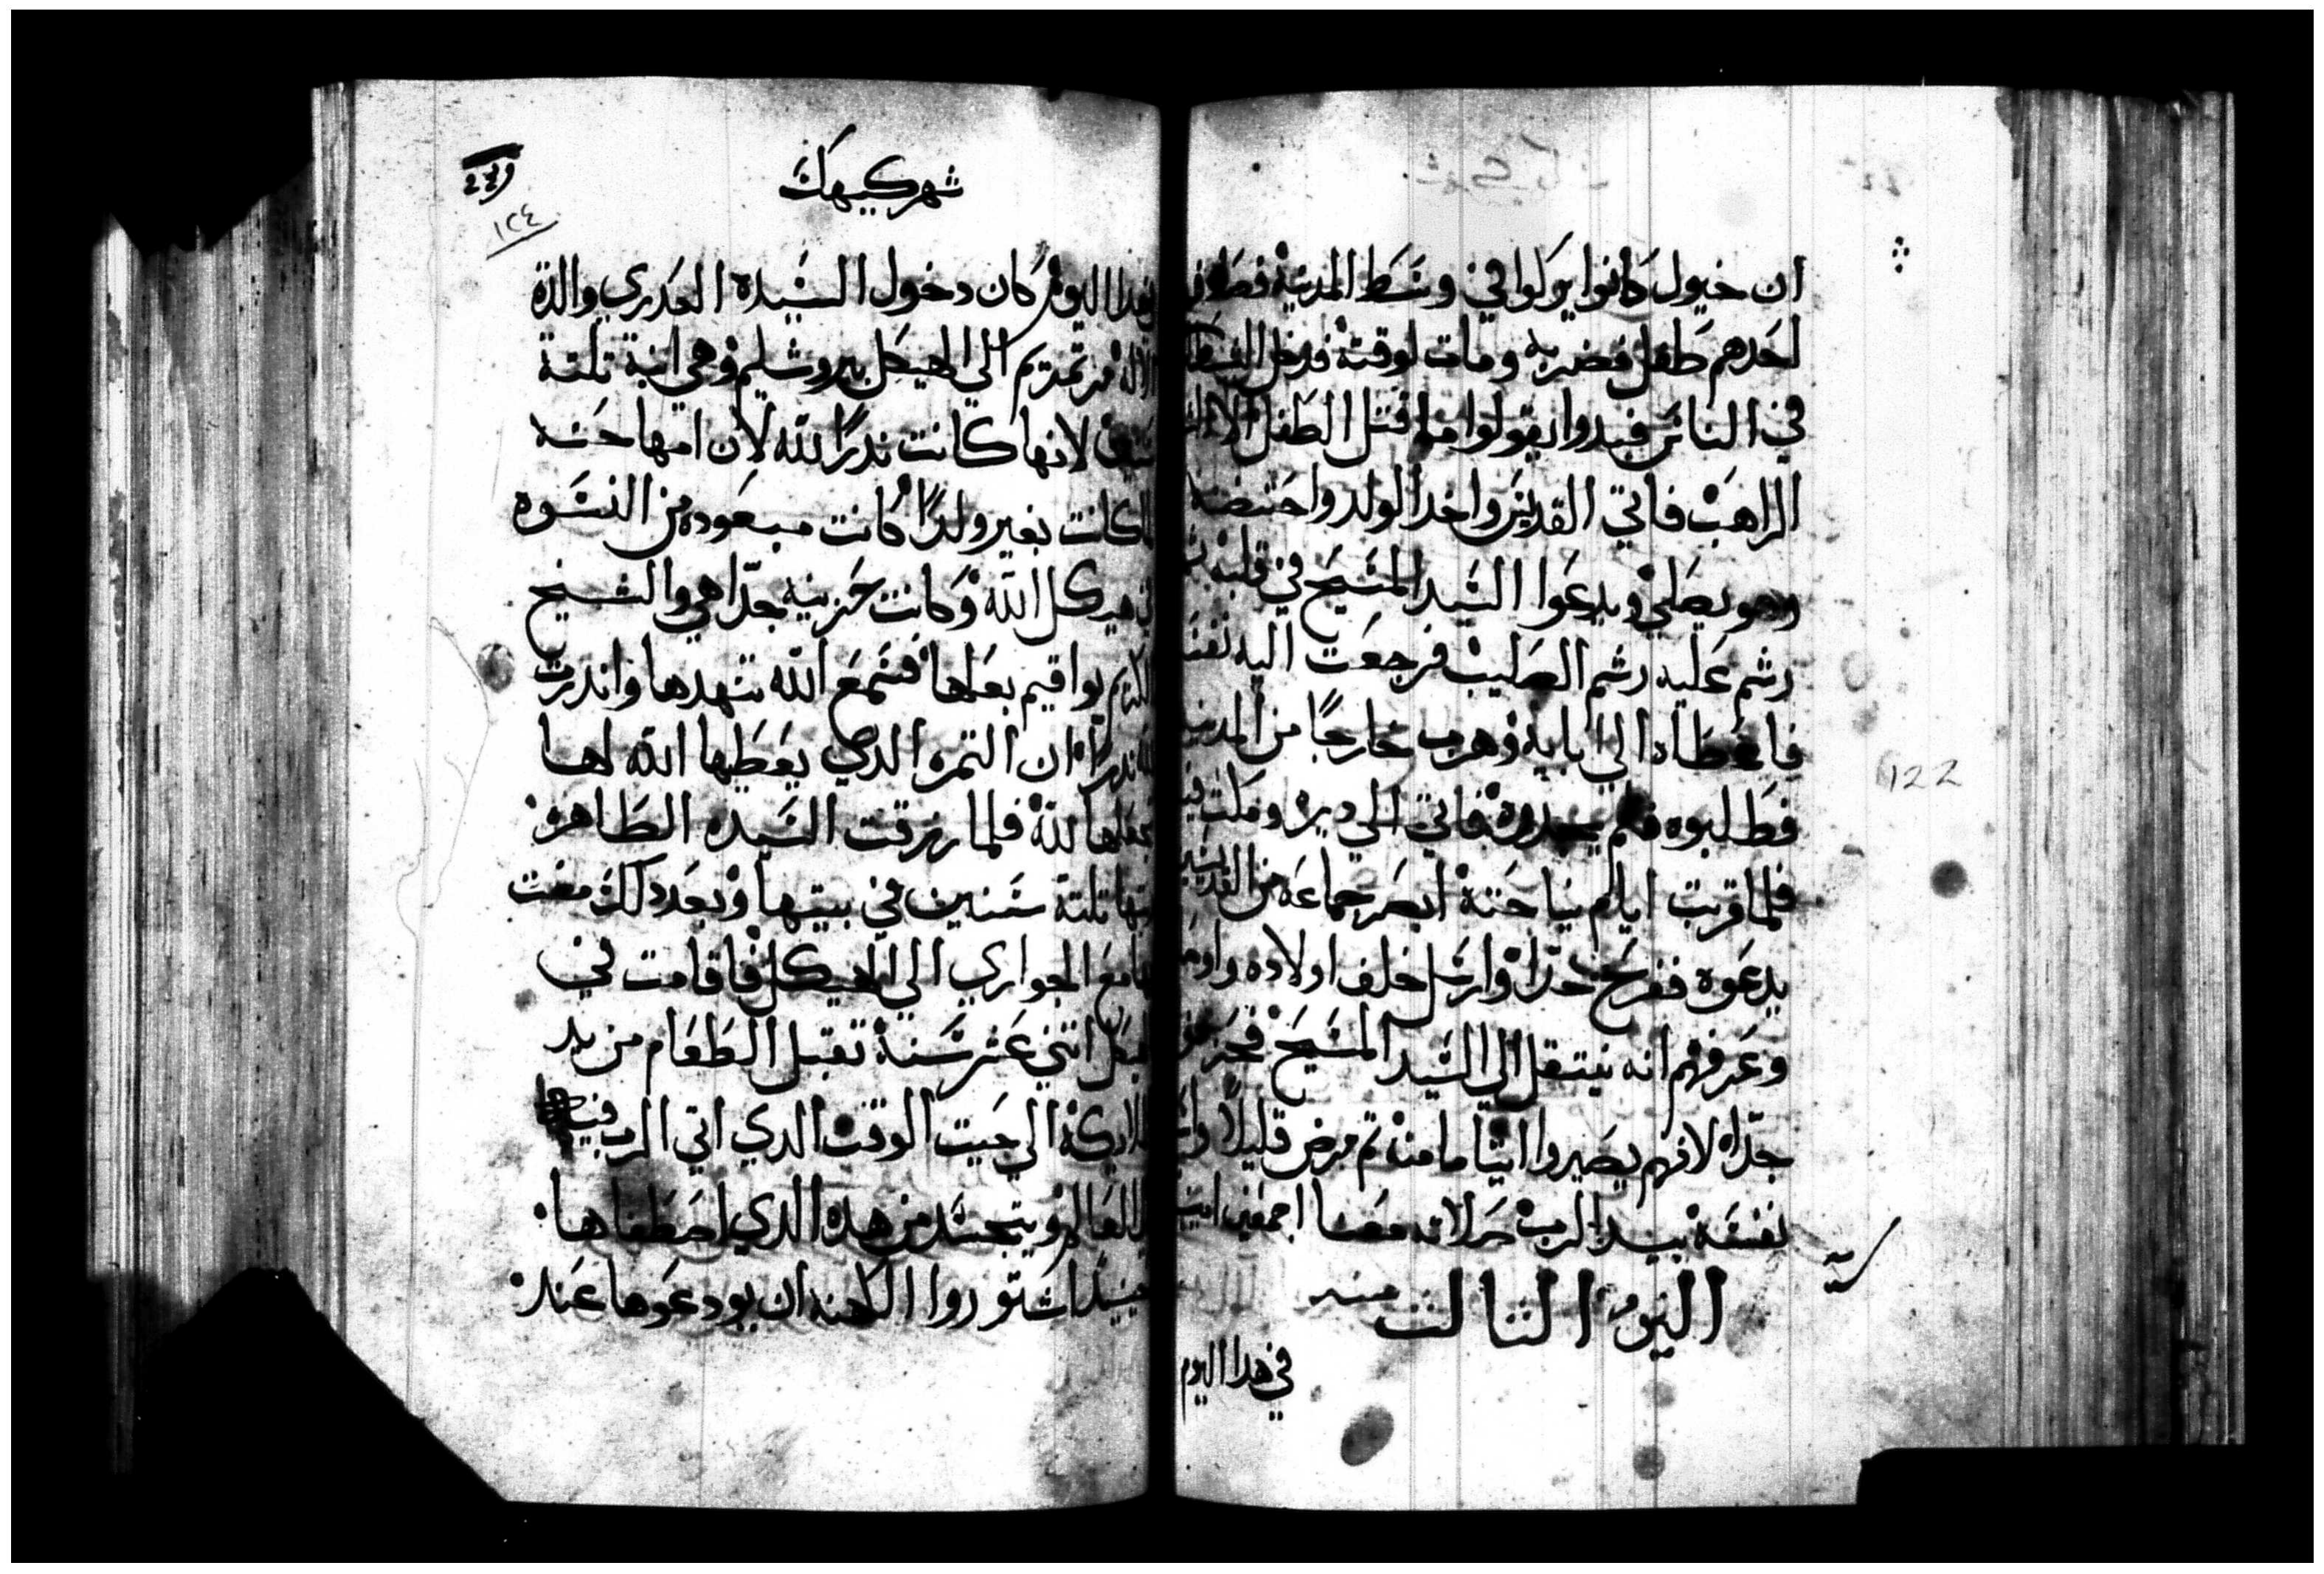 ان خيول كانوا يركلوا في وسط المدينة
احدهم طفل فضربه ومات لوقته فدخل
في الناس فبدوا يقولوا ما قتل الطفل الا
الراهب فاتي القديس واخد الولد واحتضنه
وهو يصلي ويدعوا السيد المسيح في قلبه
رشم عليه رشم الصليب فرجعت اليه
فاعطاه الي ابايه وهرب خارجًا من
فطلبوه فلم يجدوه فاتي الي ديره
فلما قربت ايام نياحته ابصر جماعه من القديسين
يدعوه ففرح جدًا وارسل خلف اولاده
وعرفهم انه ينتقل الي السيد المسيح
جدًا لانهم يصيروا ايتامًا منه تم مرض قليلًا
نفسه بيد الرب صلاته معنا اجمعين امين
اليوم الثالث منه
في هدا اليوم
شهر كيهك
١٢٤
هدا اليوم كان دخول السيده العدري والدة
الاله مرتمريم الي الهيكل بيروشليم وهي ابنة تلتة
سنين لانها كانت ندرًا لله لان امها حنه
كانت بغير ولدًا كانت مبعوده من النسوه
هيكل الله وكانت حزينه جدًا هي والشيخ
يواقيم بعلها فسمع الله تنهدها واندرت
ندرًا ان التمره الدي يعطيها الله لها
تجعلها لله فلما رزقت السيده الطاهره
تلتة سنين في بيتها وبعد دلك مضت
مع الجواري الي الهيكل فاقامت في
اتني عشر سنة تقبل الطعام من يد
الملايكة الي حيت الوقت الدي اتي الرب فيه
العالم ويتجسد من هده الدي اصطفاها
حينيدًا اشتوروا الكهنه ان يودعوها عند
122